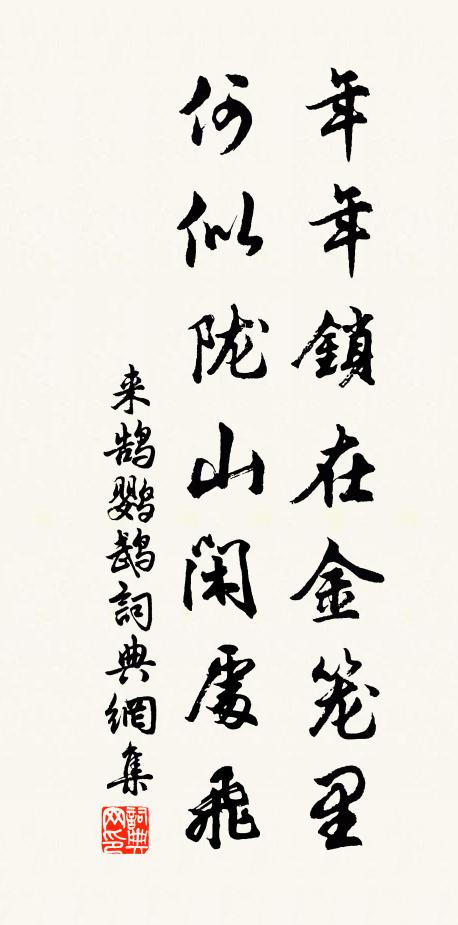 年年鎖在金笼里
何似陇山闲處飛
来鹄鹦鹉詞典網集
詞典网印